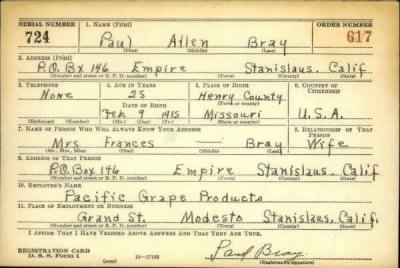 SERIAL NUMBER 1. NAME (Print) ORDER NUMBER
724 Paul Allen Bray 617
(First) (Middle) (Last)
2. ADDRESS (Print)
P.O. Bx 146 Empire Stanislaus. Calif
(Number and street or R. F. D. number) (Town) (County) (State)
3. TELEPHONE 4. AGE IN YEARS 5. PLACE OF BIRTH 6. COUNTRY OF CITIZENSHIP
None 25 Henry County
DATE OF BIRTH (Town or county)
Feb. 9 1915 Missouri U.S.A.
(Exchange) (Number) (Mo.) (Day) (Yr.) (State or country)
7. NAME OF PERSON WHO WILL ALWAYS KNOW YOUR ADDRESS 8. RELATIONSHIP OF THAT PERSON
Mrs Frances — Bray Wife
(Mr., Mrs., Miss) (First) (Middle) (Last)
9. ADDRESS OF THAT PERSON
P.O. Box 146 Empire Stanislaus, Calif
(Number and street or R. F. D. number) (Town) (County) (State)
10. EMPLOYER'S NAME
Pacific Grape Products
11. PLACE OF EMPLOYMENT OR BUSINESS
Grand St. Modesto Stanislaus, Calif.
(Number and street or R. F. D. number) (Town) (County) (State)
I AFFIRM THAT I HAVE VERIFIED ABOVE ANSWERS AND THAT THEY ARE TRUE.
REGISTRATION CARD
D. S. S. Form 1 (over) 16—17105 Paul Bray
(Registrant's signature)